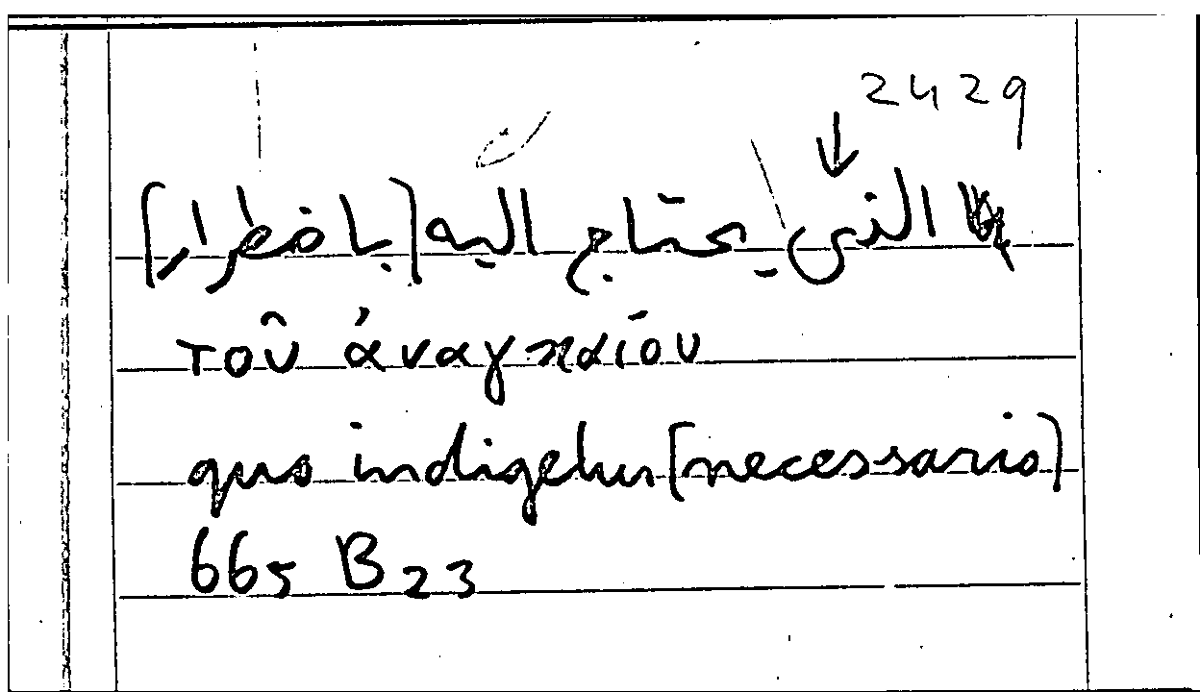 2429
↓
الذى يحتاج اليه [باضطرار]
τοῦ ἀναγκαίου
quo indigetur [necessario]
665 B 23